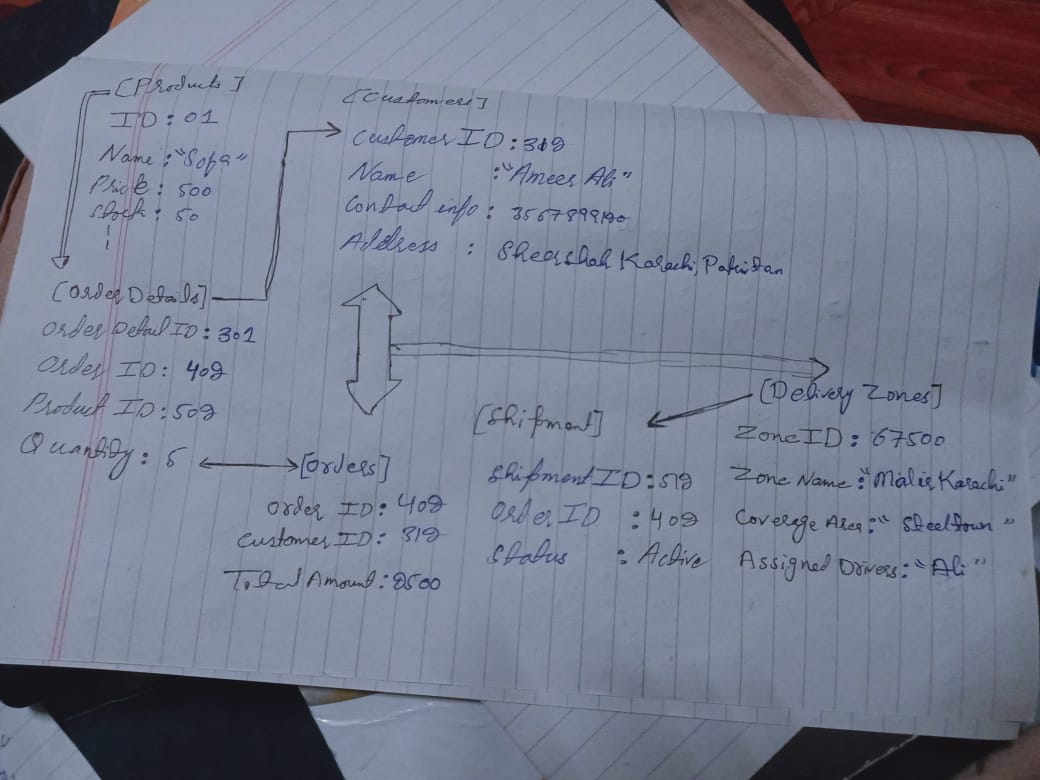 [Products]
ID : 01
Name : "Sofa"
Price : 500
Stock : 50
[Customers]
Customer ID : 319
Name : "Ameer Ali"
Contact info :
Address : Sheershah Karachi, Pakistan
[Order Details]
Order Detail ID : 301
Order ID : 409
Product ID : 509
Quantity : 5
[Orders]
Order ID : 409
Customer ID : 319
Total Amount : 2500
[Shipment]
Shipment ID : 519
Order ID : 409
Status : Active
[Delivery Zones]
Zone ID : 67500
Zone Name : "Malir Karachi"
Coverage Area : "Steeltown"
Assigned Drivers : "Ali"